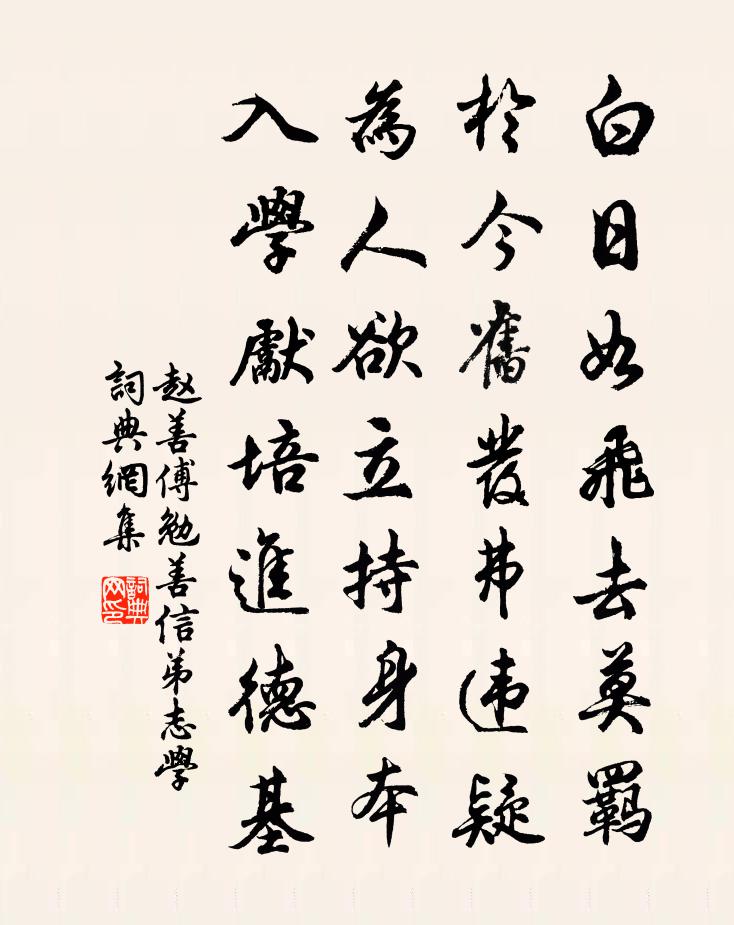 白日如飛去莫羈
於今奮發弗違疑
為人欲立持身本
入學獻培進德基
赵善傅勉善信弟志學
詞典網集
詞典網印